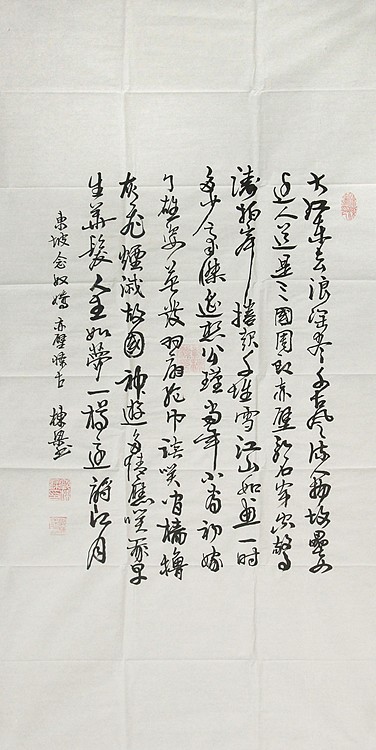 大江东去浪淘尽千古风流人物故垒西
边人道是三國周郎赤壁乱石穿空惊
涛拍岸捲起千堆雪江山如画一时
多少豪傑遥想公瑾当年小乔初嫁
了雄姿英发羽扇纶巾谈笑间樯櫓
灰飛煙滅故國神遊多情應笑我早
生華髮人生如夢一樽还酹江月
東坡念奴嬌赤壁懷古